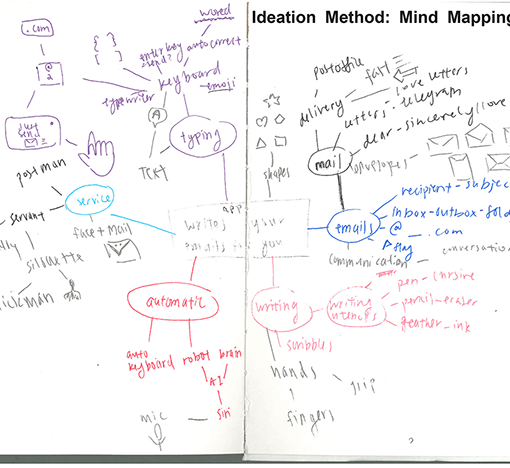 Ideation Method: Mind Mapping
.com
{ }
enter key
send?
autocorrect
keyboard
emoji
typewriter
@
2
just
send
A
typing
TEXT
postman
service
servant
face + mail
silhouette
app
writes your
emails for you
automatic
auto
keyboard
robot
brain
AI
siri
mic
postoffice
fast
delivery
love letters
letters - telegram
dear - sincerely/love
mail
envelopes
shapes
recipient - subject
emails
inbox - outbox - fold
@
.com
flag
communication
conversation
writing
writing
utencils
pen - cursive
pencil - eraser
feather - ink
scribbles
hands
grip
fingers